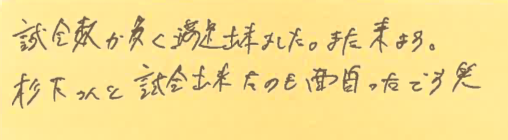 試合数が多く満足出来ました。また来ます。
杉下さんと試合出来たのも面白ったです